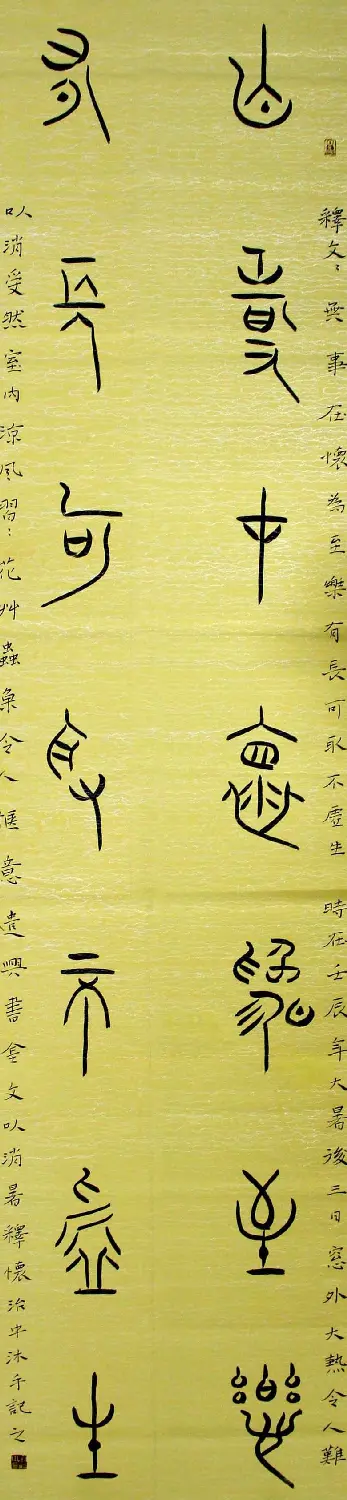 無事在懷為至樂
有長可取不虛生
釋文：無事在懷為至樂有長可取不虛生 時在壬辰年大暑後三日窓外大熱令人難
以消受然室内涼風習：花艸蟲魚令人愜意遣興書金文以消暑釋懷治中沐手記之